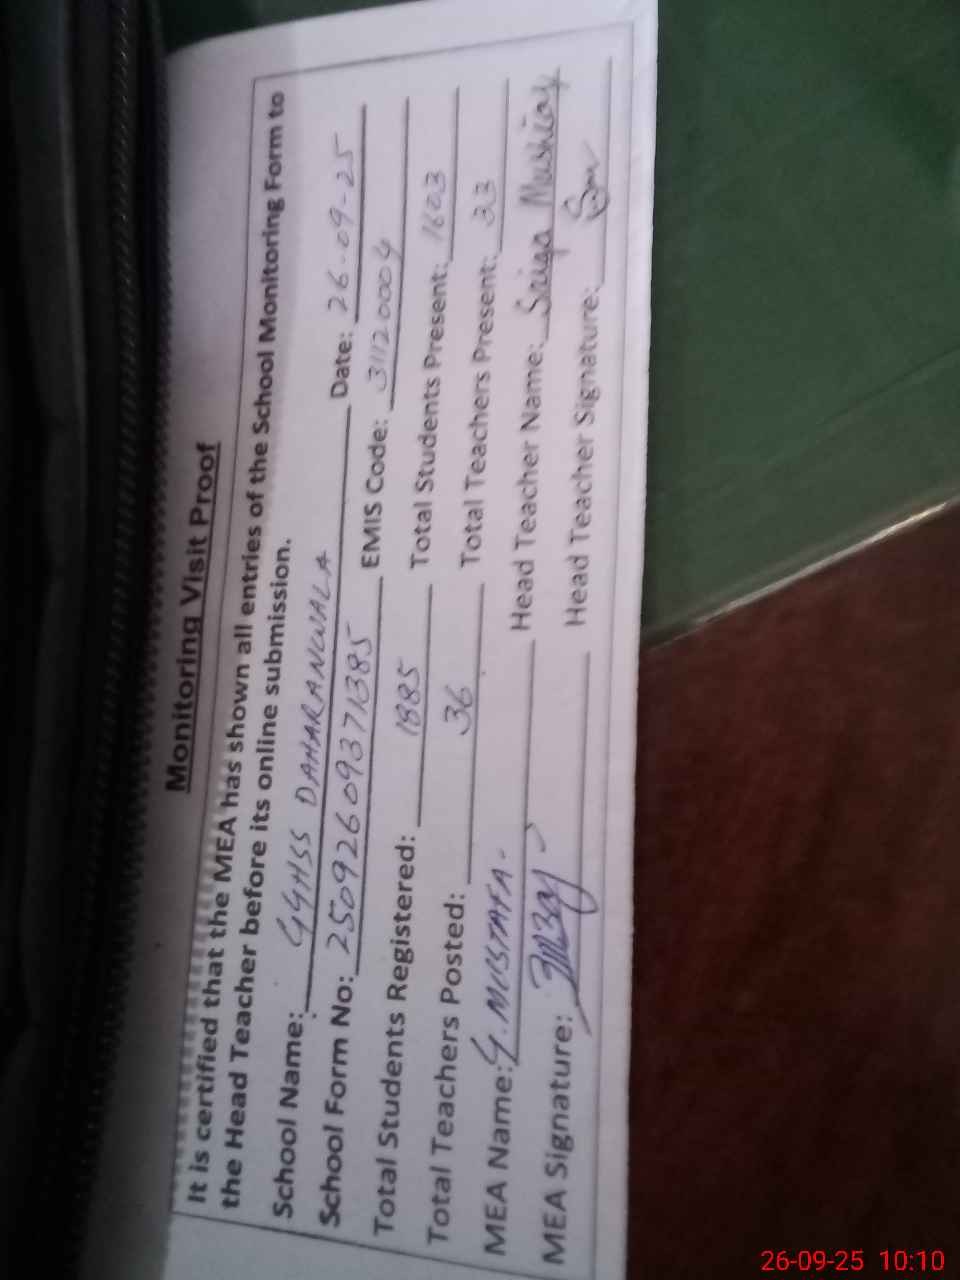 Monitoring Visit Proof
It is certified that the MEA has shown all entries of the School Monitoring Form to
the Head Teacher before its online submission.
School Name: GGHSS DAHARANWALA Date: 26-09-25
School Form No: 25092609371385 EMIS Code: 31120004
Total Students Registered: 1885 Total Students Present: 1603
Total Teachers Posted: 36 Total Teachers Present: 33
MEA Name: G. MUSTAFA. Head Teacher Name: Saiqa Mushtaq
MEA Signature: Head Teacher Signature:
26-09-25 10:10